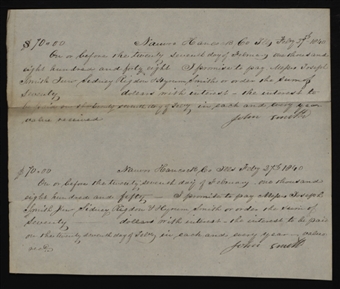 $70=00 Nauvoo Hancock Co Ills Feby 27th 1840
On or before the twenty seventh day of February one thousand
eight hundred and forty eight I promise to pay Messrs Joseph
Smith Junr Sidney Rigdon & Hyrum Smith or order the sum of
Seventy dollars with interest - the interest to
be paid on the twenty seventh day of Feby in each and every year
value received
John Smith
$70=00 Nauvoo Hancock Co Ills Feby 27th 1840
On or before the twenty seventh day of February one thousand
eight hundred and fifty I promise to pay Messrs Joseph
Smith Junr Sidney Rigdon & Hyrum Smith or order the sum of
Seventy dollars with interest the interest to be paid
on the twenty seventh day of Feby in each and every year - value
John Smith